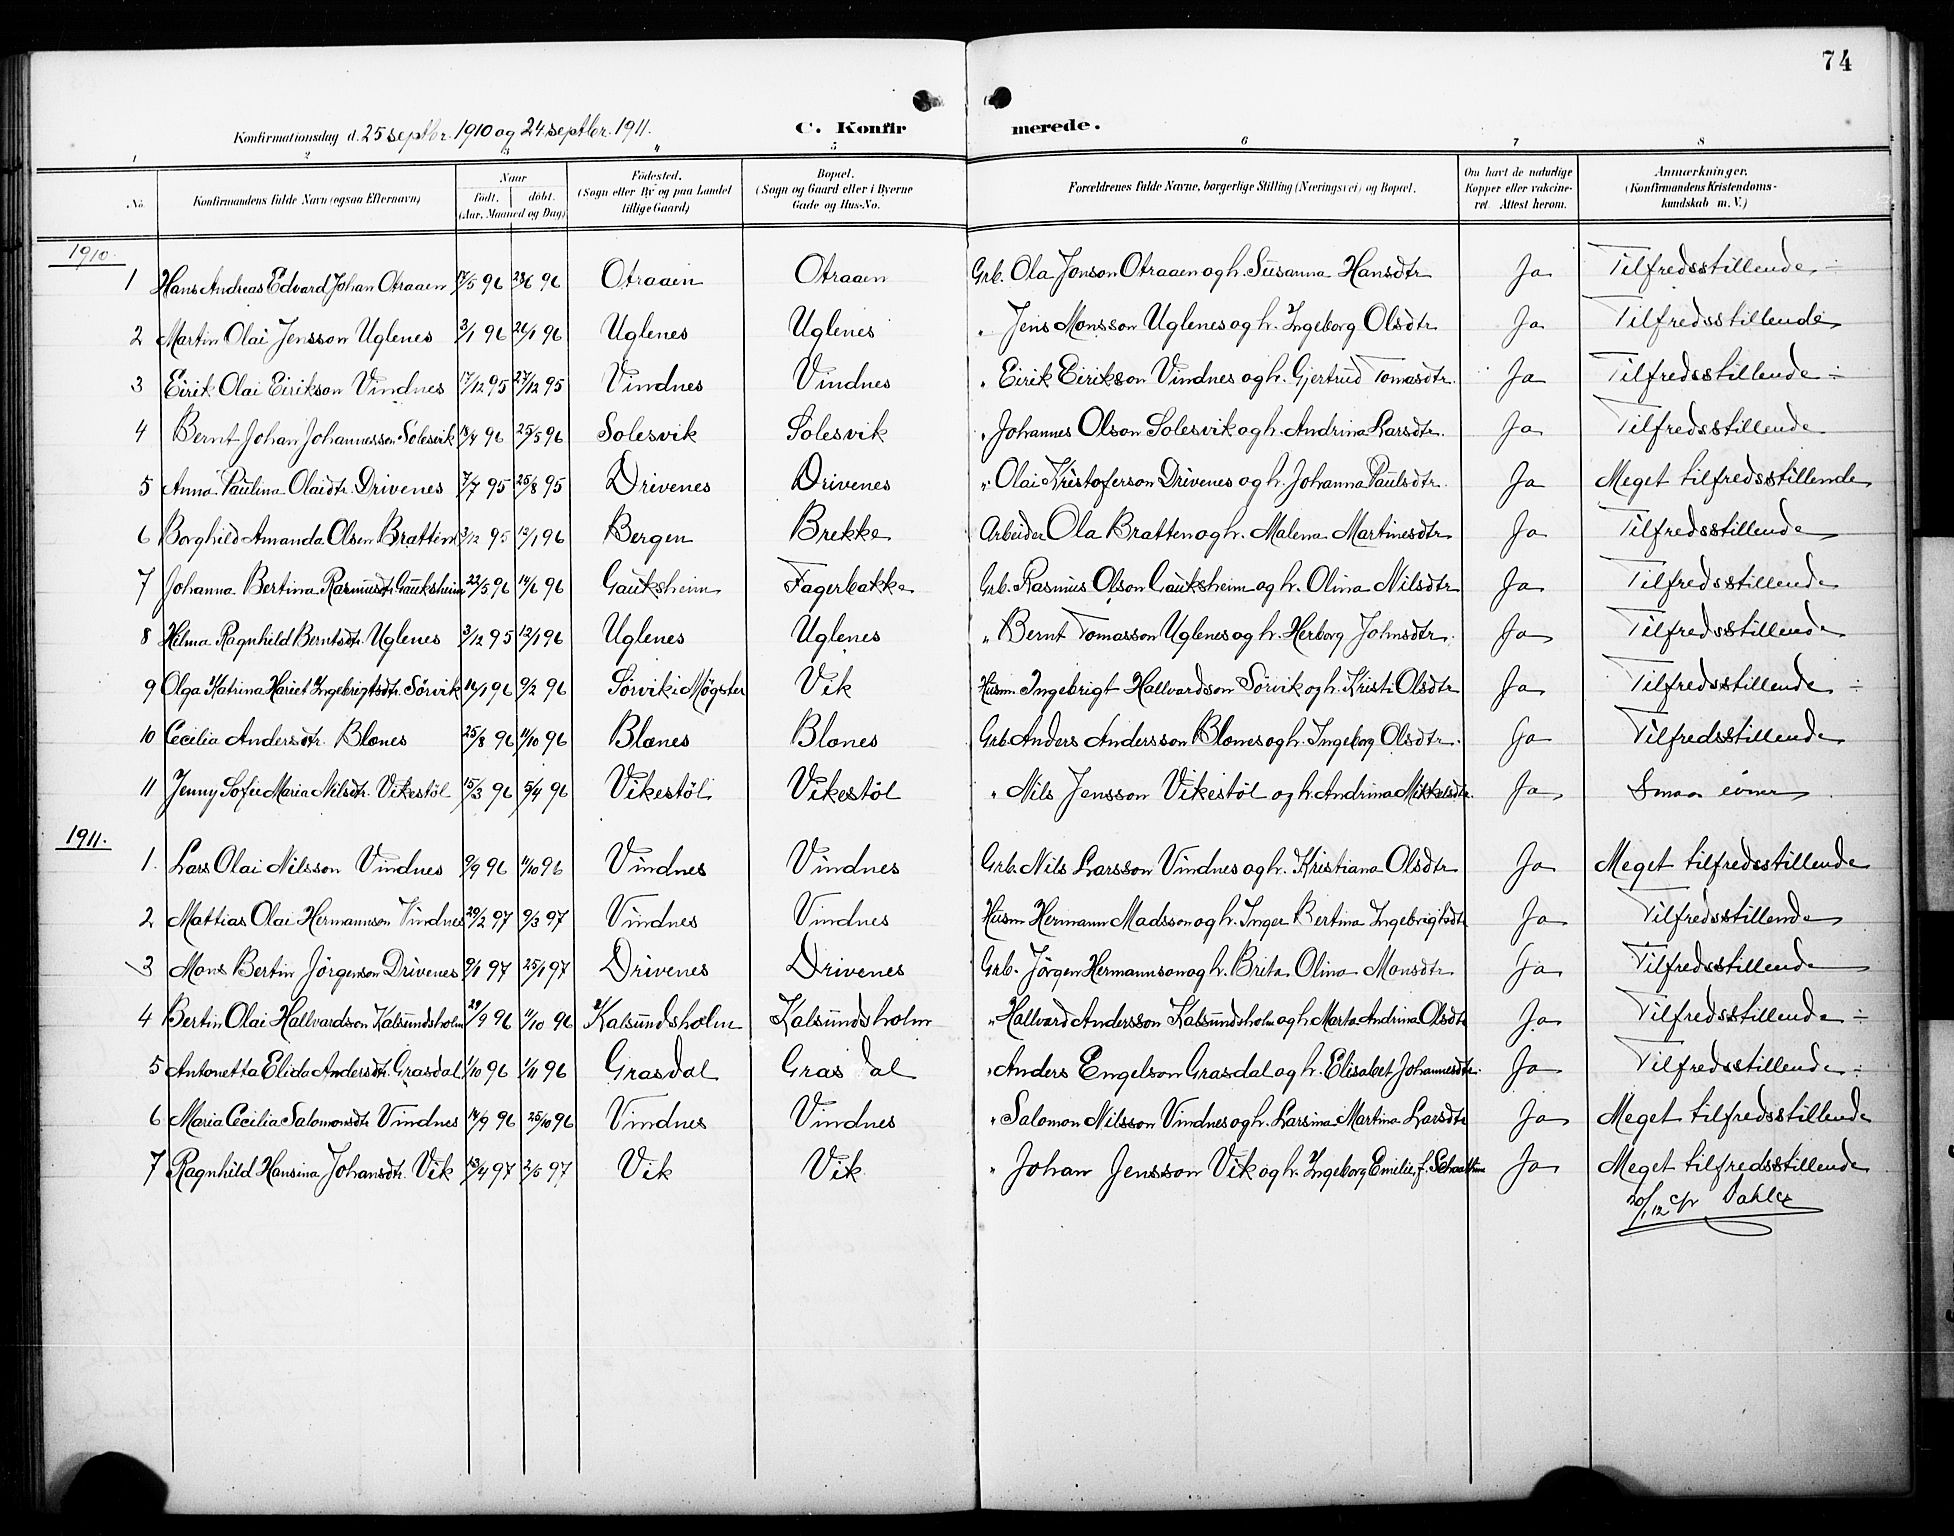 74
Konfirmationsdag d. 25 septbr. 1910 og 24 septbr. 1911. C. Konfirmerede.
1 2 3 4 5 6 7 8
No. Konfirmandens fulde Navn (ogsaa Efternavn) Naar født. døbt. (Aar, Maaned og Dag) Fødested. (Sogn eller By og paa Landet tillige Gaard) Bopæl. (Sogn og Gaard eller i Byerne Gade og Hus-No. Forældrenes fulde Navne, borgerlige Stilling (Næringsvei) og Bopæl. Om havt de naturlige Kopper eller vaccineret. Attest herom. Anmærkninger. (Konfirmandens Kristendomskundskab m. V.)
1910.
1 Hans Andreas Edvard Johan Otraaen 17/5 96 28/6 96 Otraaen Otraaen Grb. Ola Jonson Otraaen og h. Susanna Hansdtr Ja Tilfredsstillende ÷
2 Martin Olai Jensson Uglenes 3/1 96 26/1 96 Uglenes Uglenes " Jens Monsson Uglenes og h. Ingeborg Olsdtr Ja Tilfredsstillende
3 Eirik Olai Eirikson Vindnes 17/12 95 27/12 95 Vindnes Vindnes " Eirik Eirikson Vindnes og h. Gjertrud Tomasdtr. Ja Tilfredsstillende ÷
4 Bernt Johan Johannesson Solesvik 18/4 96 25/5 96 Solesvik Solesvik " Johannes Olson Solesvik og h. Andrina Larsdtr. Ja Tilfredsstillende
5 Anna Paulina Olaidtr. Drivenes 7/7 95 25/8 95 Drivenes Drivenes " Olai Kristoferson Drivenes og h. Johanna Paulsdtr. Ja Meget tilfredsstillende
6 Borghild Amanda Olsen Bratten 3/12 95 12/1 96 Bergen Brekke Arbeider Ola Bratten og h. Malena Martinesdtr Ja Tilfredsstillende
7 Johanna Bertina Rasmusdt. Gauksheim 22/5 96 14/6 96 Gauksheim Fagerbakke Grb. Rasmus Olson Gauksheim og h. Olina Nilsdtr Ja Tilfredsstillende
8 Helma Ragnhild Berntsdtr. Uglenes 3/12 95 12/1 96 Uglenes Uglenes " Bernt Tomasson Uglenes og h. Herborg Johnsdtr. Ja Tilfredsstillende
9 Olga Katrina Hariet Ingebrigtsdtr. Sørvik 16/1 96 9/2 96 Sørvik i Møgster Vik Husm Ingebrigt Hallvardson Sørvik og h. Kristi Olsdtr Ja Tilfredsstillende ÷
10 Cecilia Andersdtr. Blænes 25/8 96 11/10 96 Blænes Blænes Grb. Anders Andersson Blænes og h. Ingeborg Olsdtr. Ja Tilfredsstillende
11 Jenny Sofie Maria Nilsdtr. Vikestøl 15/3 96 5/4 96 Vikestøl Vikestøl " Nils Jensson Vikestøl og h. Andrina Mikkelsdtr. Ja Smaa evner
1911.
1. Lars Olai Nilsson Vindnes 9/9 96 11/10 96 Vindnes Vindnes Grb. Nils Larsson Vindnes og h. Kristiana Olsdtr Ja Meget tilfredsstillende
2 Mattias Olai Hermannson Vindnes 20/2 97 9/3 97 Vindnes Vindnes Husm Hermann Madsson og h. Inger Bertina Ingebrigtsdtr Ja Tilfredsstillende
3 Mons Bertin Jørgenson Drivenes 9/1 97 25/1 97 Drivenes Drivenes Grb. Jørgen Hermannson og h. Brita Olina Monsdtr Ja Tilfredsstillende
4 Bertin Olai Hallvardson Kalsundsholm 29/9 96 11/10 96 Kalsundsholm Kalsundsholm " Hallvard Andersson Kalsundsholm og h. Marta Andrina Olsdtr Ja Tilfredsstillende ÷
5 Antonetta Elida Andersdtr. Grasdal 1/10 96 1/11 96 Grasdal Grasdal " Anders Engelson Grasdal og h. Elisabet Johannesdtr. Ja Tilfredsstillende ÷
6 Maria Cecilia Salomonsdtr Vindnes 14/9 96 25/10 96 Vindnes Vindnes " Salomon Nilsson Vindnes og h. Larsina Martina Larsdtr Ja Meget tilfredsstillende
7 Ragnhild Hansina Johansdtr. Vik 13/4 97 2/5 97 Vik Vik " Johan Jensson Vik og h. Ingeborg Emilie f. Ja Meget tilfredsstillende